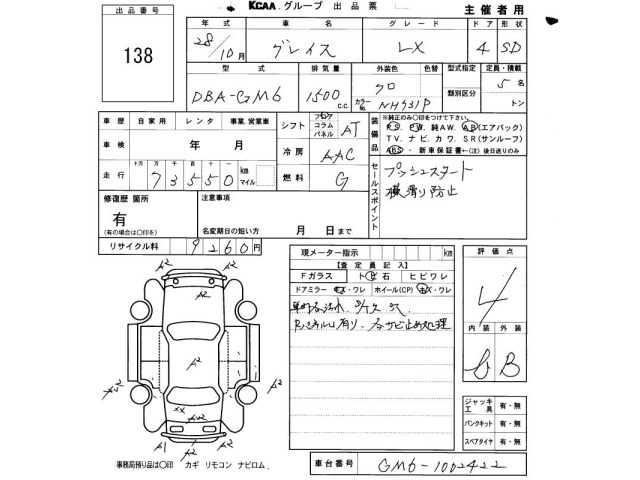 KCAA グループ 出品票
主催者用
出品番号
138
年式 車名 グレード ドア 形状
28/10月 グレイス LX 4 SD
型式 排気量 外装色 色替 型式指定 定員・積載
DBA-GM6 1500 c.c. クロ カラーNo. NH731P 類別区分 5名
トン
車歴 自家用 レンタ 事業、営業車
シフト フロア コラム パネル AT
車検 年 月
冷房 AAC
走行 十万 万 千 百 十 一
73550 km マイル
燃料 G
装備品
※純正のみ○印をつけて下さい。
PS. PW. 純AW. AB(エアバック)
TV. ナビ. カワ. SR(サンルーフ)
ABS. 新車保証書←(注)後日送りのみ
セールスポイント
プッシュスタート
横滑り防止
修復歴 箇所
有
(有の場合は○印を)
注意事項
名変期日の短い方 月 日まで
リサイクル料 9260円
現メーター指示 km
【査定員記入】
Fガラス トビ石 ヒビワレ
ドアミラー キズ・ワレ ホイール(CP) キズ・ワレ
Rパネル凹有り.
サビ止め処理
評価点
4
内装 外装
B
ジャッキ工具 有・無
パンクキット 有・無
スペアタイヤ 有・無
A2
A2
A2
A2
A2
A1
A2
事務局預り品は○印 カギ リモコン ナビロム.
車台番号 GM6-1002422